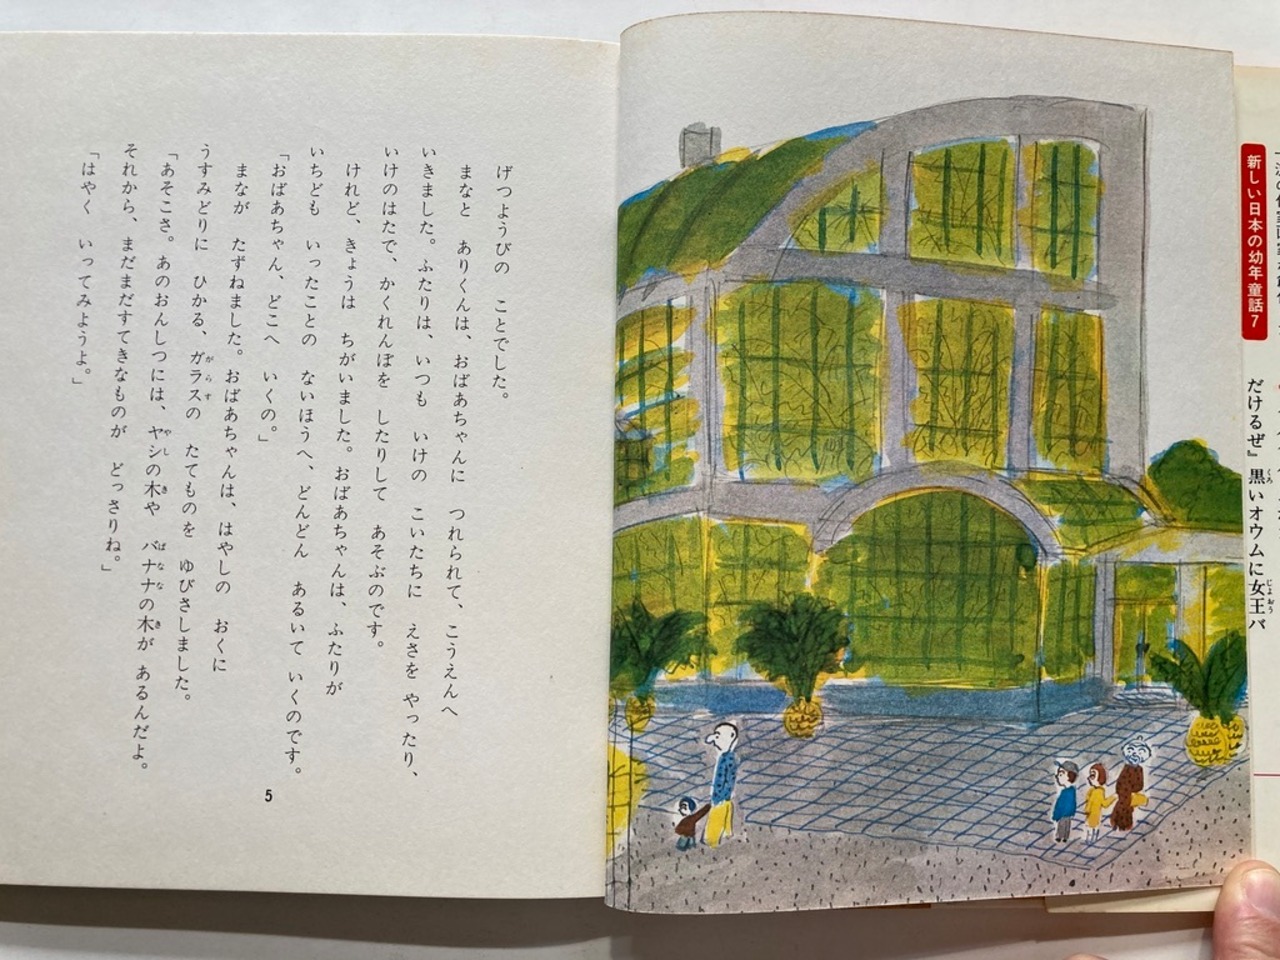 げつようびの　ことでした。
まなと　ありくんは、おばあちゃんに　つれられて、こうえんへ
いきました。ふたりは、いつも　いけの　こいたちに　えさを　やったり、
いけのはたで、かくれんぼを　したりして　あそぶのです。
けれど、きょうは　ちがいました。おばあちゃんは、ふたりが
いちども　いったことの　ないほうへ、どんどん　あるいて　いくのです。
「おばあちゃん、どこへ　いくの。」
まなが　たずねました。おばあちゃんは、はやしの　おくに
うすみどりに　ひかる、ガラスの　たてものを　ゆびさしました。
「あそこさ。あのおんしつには、ヤシの木や　バナナの木が　あるんだよ。
それから、まだまだすてきなものが　どっさりね。」
「はやく　いってみようよ。」
5
新しい日本の幼年童話7
だけるぜ』黒いオウムに女王バ